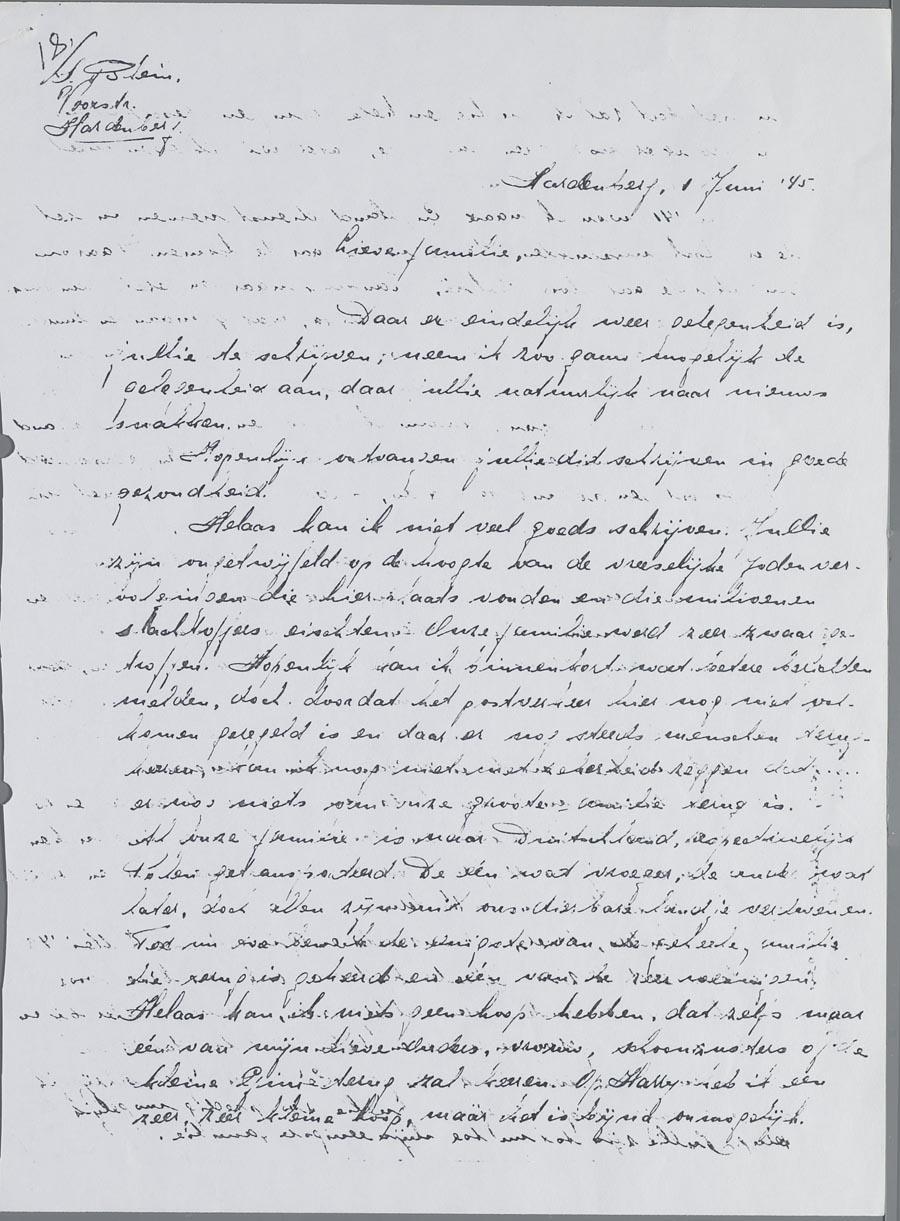 Voorstr.
Hardenberg
Hardenberg, 1 Juni '45.
Lieve familie,
Daar er eindelijk weer gelegenheid is,
jullie te schrijven; neem ik zoo gauw mogelijk de
gelegenheid aan, daar jullie natuurlijk naar nieuws
snakken.
Hopenlijk ontvangen jullie dit schrijven in goede
gezondheid.
Helaas kan ik niet veel goeds schrijven. Jullie
zijn ongetwijfeld op de hoogte van de vreeselijke Joden ver-
volgingen die hier plaats vonden en die milioenen
slachtoffers eischten. Onze familie werd zeer zwaar ge-
troffen. Hopenlijk kan ik binnenkort wat betere berichten
melden, doch doordat het postverkeer hier nog niet vol-
komen geregeld is en daar er nog steeds menschen terug-
keeren, kan ik nog niet met zekerheid zeggen dat
er nog niets van onze groote familie terug is.
Al onze familie is naar Duitschland, respectievelijk
Polen getransporteerd. De één wat vroeger, de ander wat
later, doch allen zijn uit ons dierbare landje verdwenen.
Tot nu toe ben ik de eenigste van de geheele familie
die terug is gekeerd en één van de zeer weinigen.
Helaas kan ik niets geen hoop hebben, dat zelfs maar
één van mijn lieve ouders, vrouw, schoonzusters of de
kleine terug zal keeren. Op Harry heb ik een
zeer, zeer kleine hoop, maar het is bijna onmogelijk.